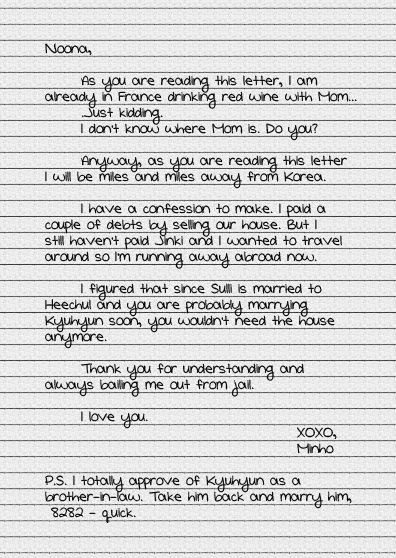 Noona,
As you are reading this letter, I am
already in France drinking red wine with Mom...
Just kidding.
I don't know where Mom is. Do you?
Anyway, as you are reading this letter
I will be miles and miles away from Korea.
I have a confession to make. I paid a
couple of debts by selling our house. But I
still haven't paid Jinki and I wanted to travel
around so I'm running away abroad now.
I figured that since Sulli is married to
Heechul and you are probably marrying
Kyuhyun soon, you wouldn't need the house
anymore.
Thank you for understanding and
always bailing me out from jail.
I love you.
XOXO,
Minho
P.S. I totally approve of Kyuhyun as a
brother-in-law. Take him back and marry him,
8282 - quick.